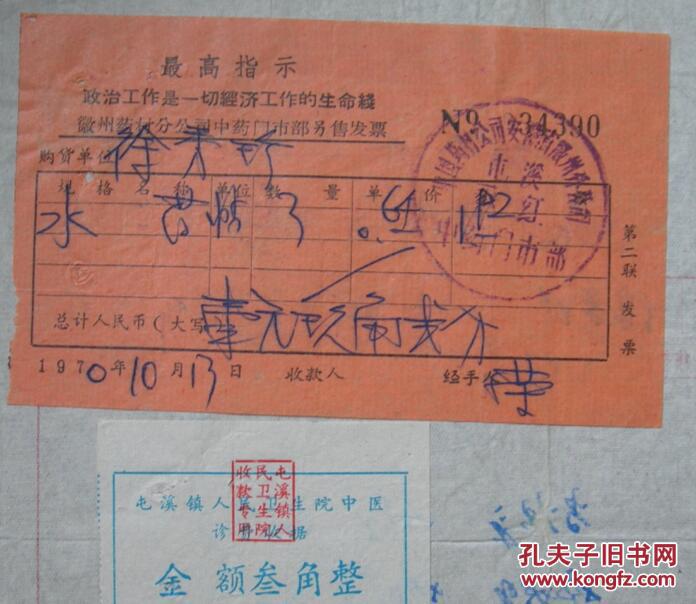 最高指示
政治工作是一切經济工作的生命綫
徽州药材分公司中药门市部另售发票
№ 34390
购货单位
规格名称 单位 数量 单价
水 3 0.64 1.92
总计人民币(大写 壹元玖角弍分
1970年10月13日 收款人 经手人
第二联 发票
屯溪红
中药门市部
屯溪镇人民卫生院中医
诊 收据
金额叁角整
屯溪镇人民卫生院收款专用
孔夫子旧书网
www.kongfz.com